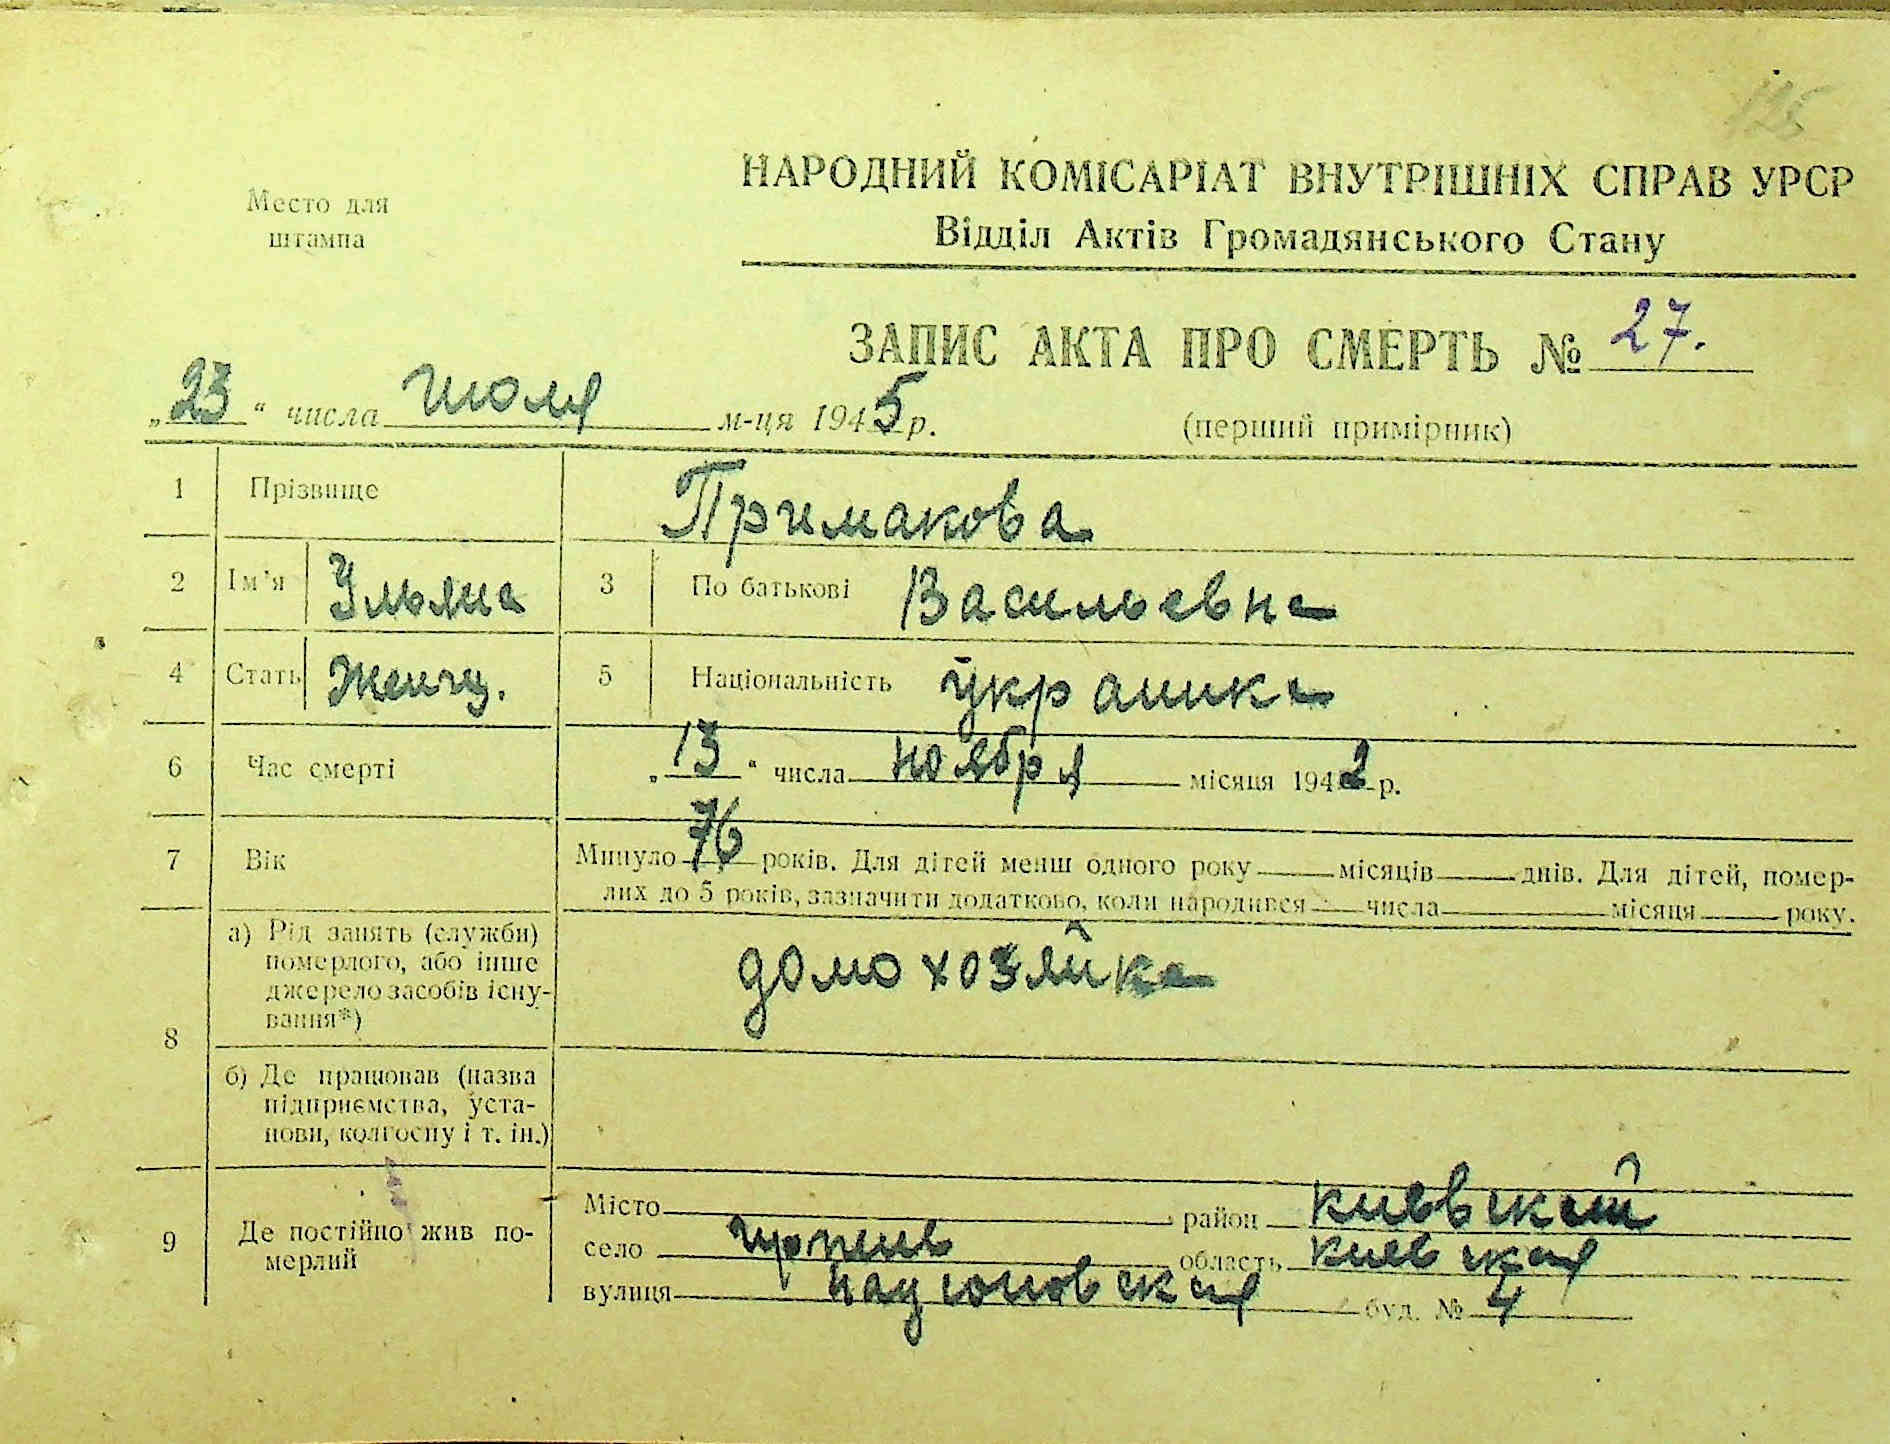 125
НАРОДНИЙ КОМІСАРІАТ ВНУТРІШНІХ СПРАВ УРСР
Відділ Актів Громадянського Стану
Место для
штампа
ЗАПИС АКТА ПРО СМЕРТЬ № 27.
„23“ числа июля м-ця 1945 р.
(перший примірник)
1 Прізвище Примакова
2 Ім’я Ульяна 3 По батькові Васильевна
4 Стать Женщ. 5 Національність украинка
6 Час смерті „13“ числа ноября місяця 1942 р.
7 Вік Минуло 76 років. Для дітей менш одного року місяців днів. Для дітей, помер-
лих до 5 років, зазначити додатково, коли народився числа місяця року.
8 а) Рід занять (служби)
померлого, або інше
джерело засобів існу-
вання*)
домохозяйка
б) Де працював (назва
підприємства, уста-
нови, колгоспу і т. ін.)
9 Де постійно жив по-
мерлий
Місто район киевский
село ирпень область киевская
вулиця буд. № 4